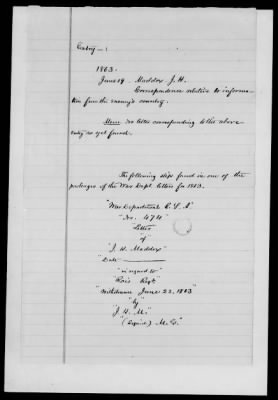 Entry—:
1863.
June 19. Maddox J. H.
Correspondence relative to informa-
tion from the enemy's country.
Mem: no letter corresponding to the above
entry as yet found.
The following slip found in one of the
packages of the War Dept. letters for 1863.
"War Department C. S. A."
"No. 474"
Letter
"of"
"J. H. Maddox"
"Date
"in regard to"
Regt"
"Withdrawn June 22, 1863"
"by"
"J. H. M."
"(Signed) M. S."